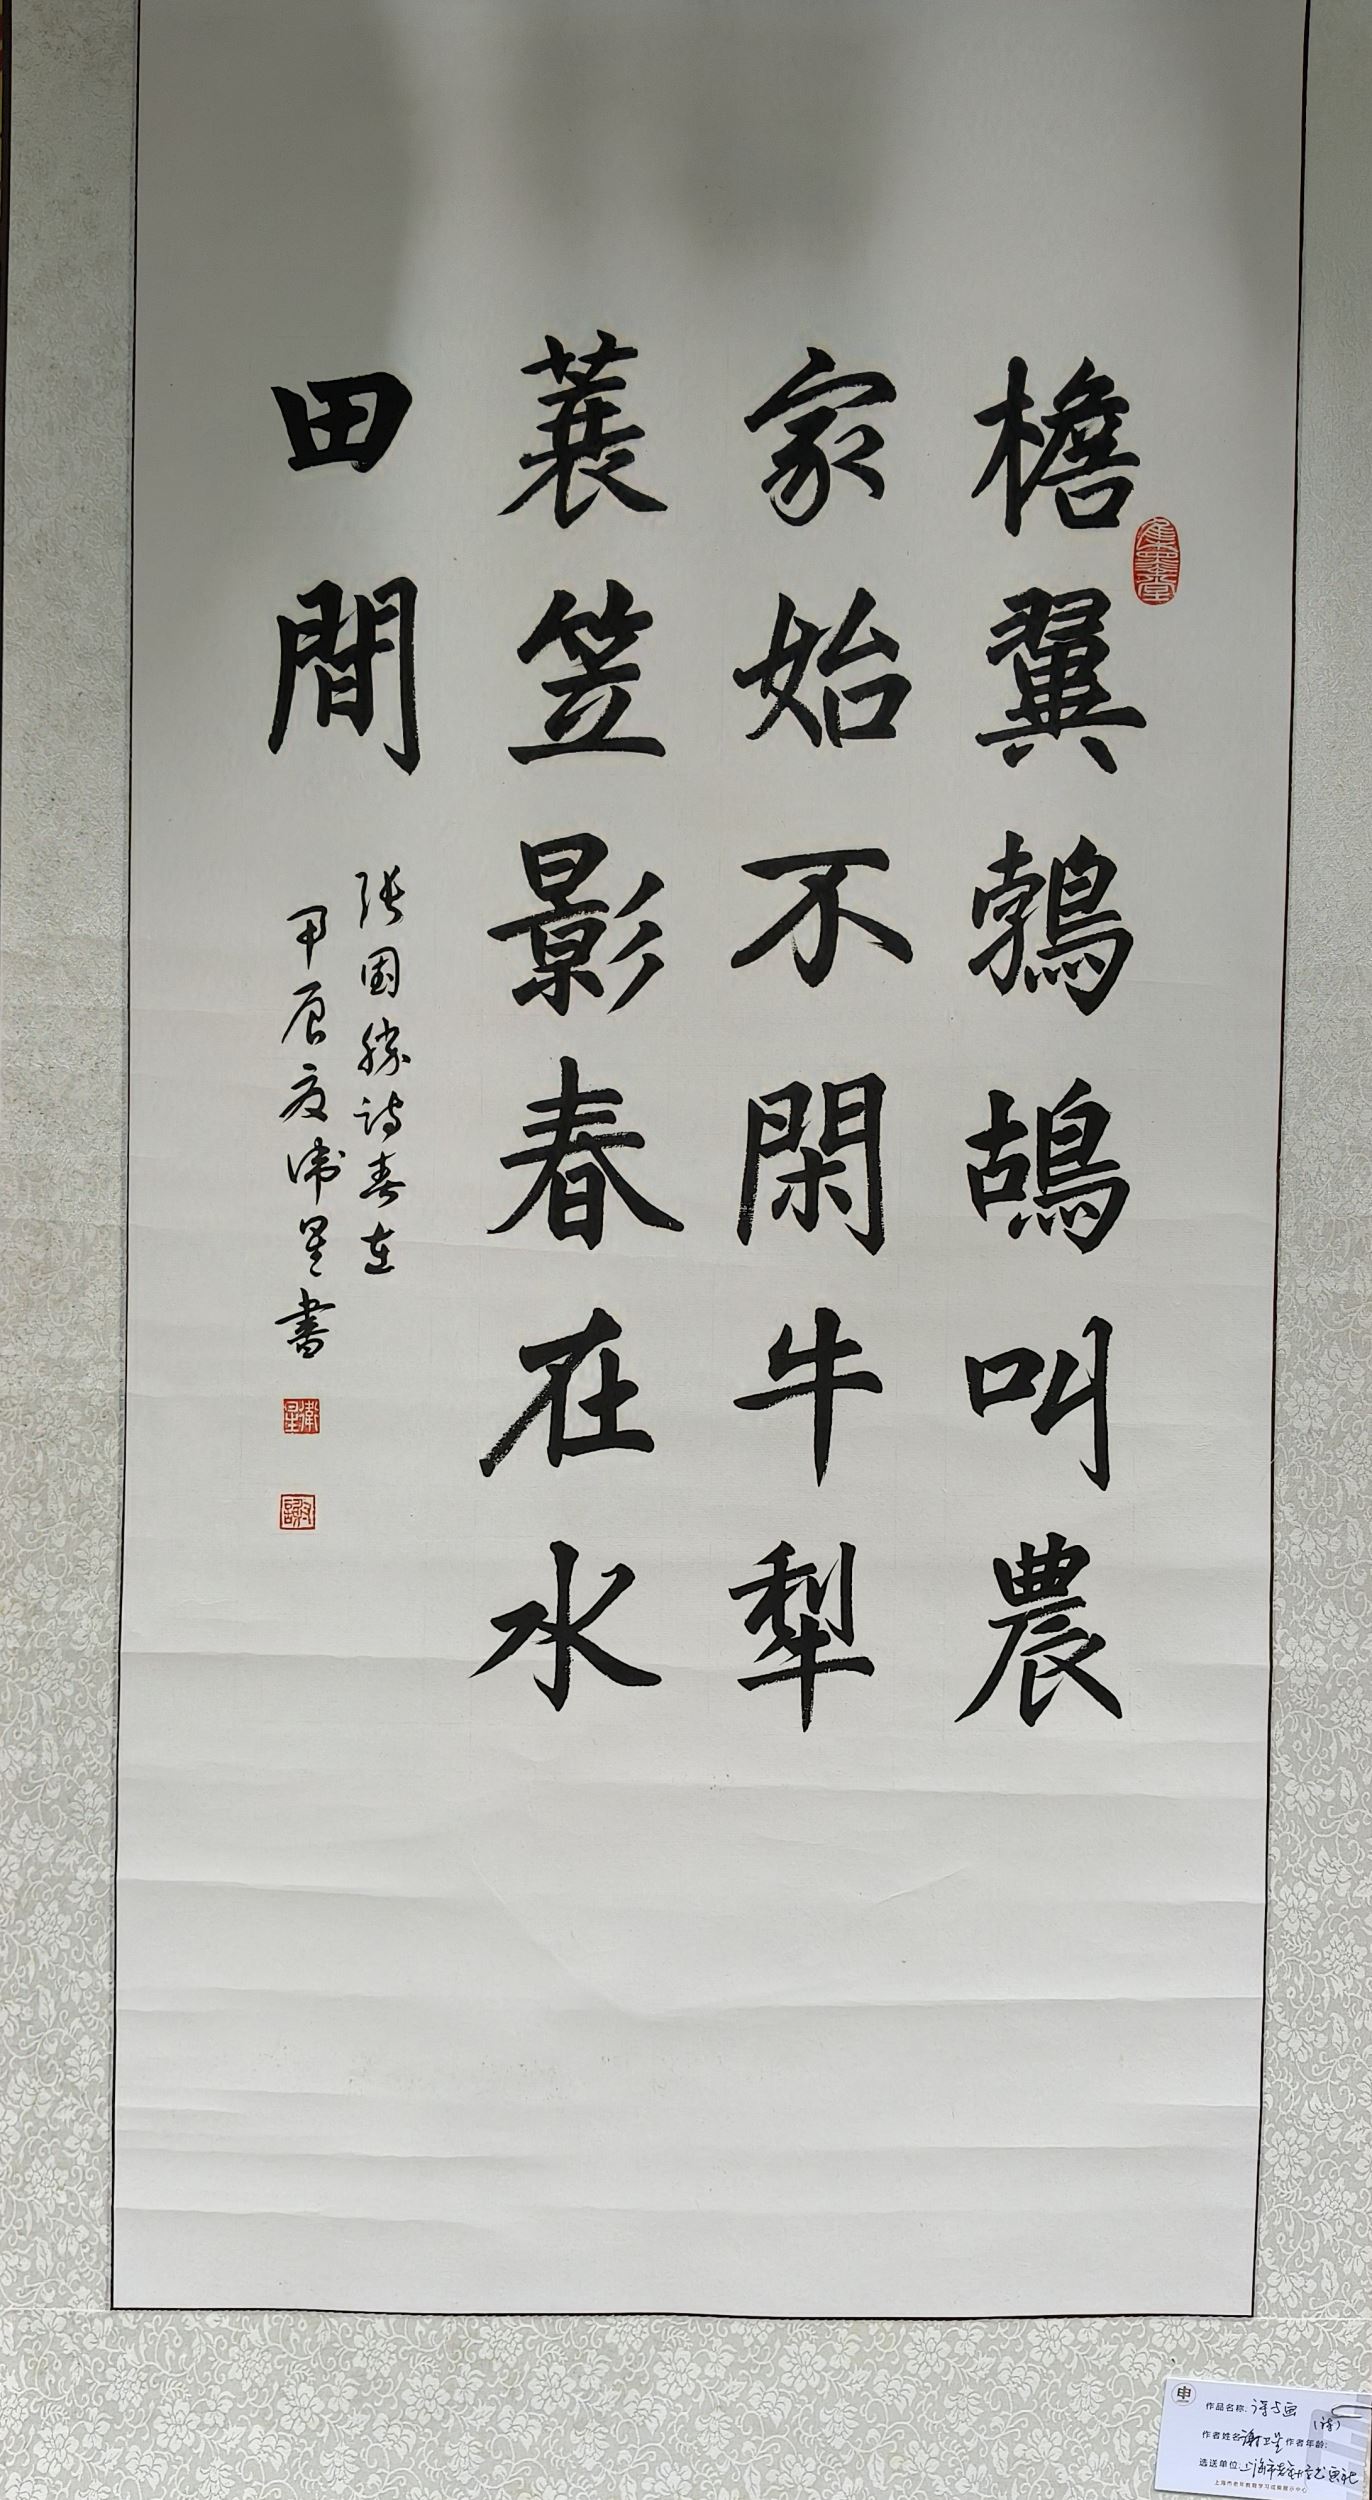 檐翼鵓鴣叫農
家始不閑牛犁
蓑笠影春在水
田間
張国勝詩春在
甲辰夏衛星書
衛星
謝
申
作品名称:
作者姓名 谢卫星 作者年龄:
选送单位 上海市老
上海市老年教育学习成果展示中心